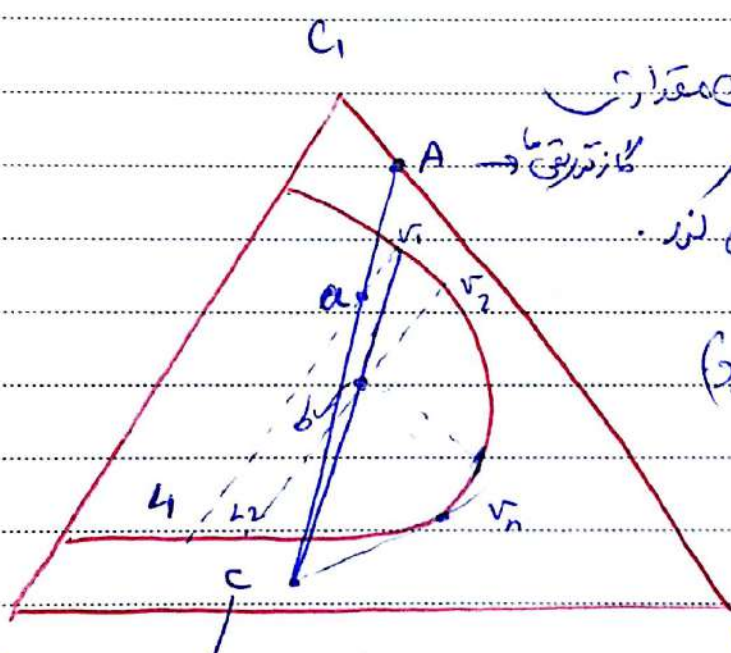 C₁
مقدار
A → گاز تزریقی ما
کند.
V₁
a
V₂
b
L₁
L₂
Vn
C